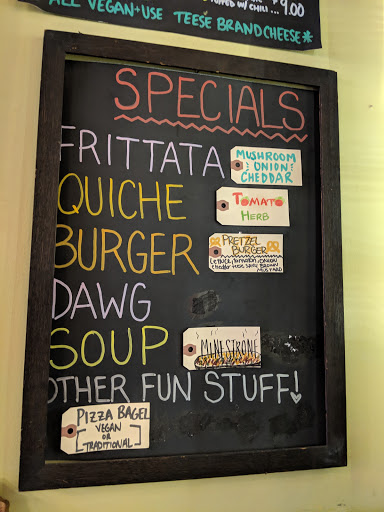 W/ CHILI ... 9.00
ALL VEGAN + USE TEESE BRAND CHEESE*
SPECIALS
FRITTATA
MUSHROOM
ONION
CHEDDAR
QUICHE
TOMATO
HERB
BURGER
PRETZEL
BURGER
LETTUCE, TOMATO, ONION
CHEDDAR
BROWN
MUSTARD
DAWG
SOUP
MINESTRONE
OTHER FUN STUFF!
PIZZA BAGEL
VEGAN
OR
TRADITIONAL